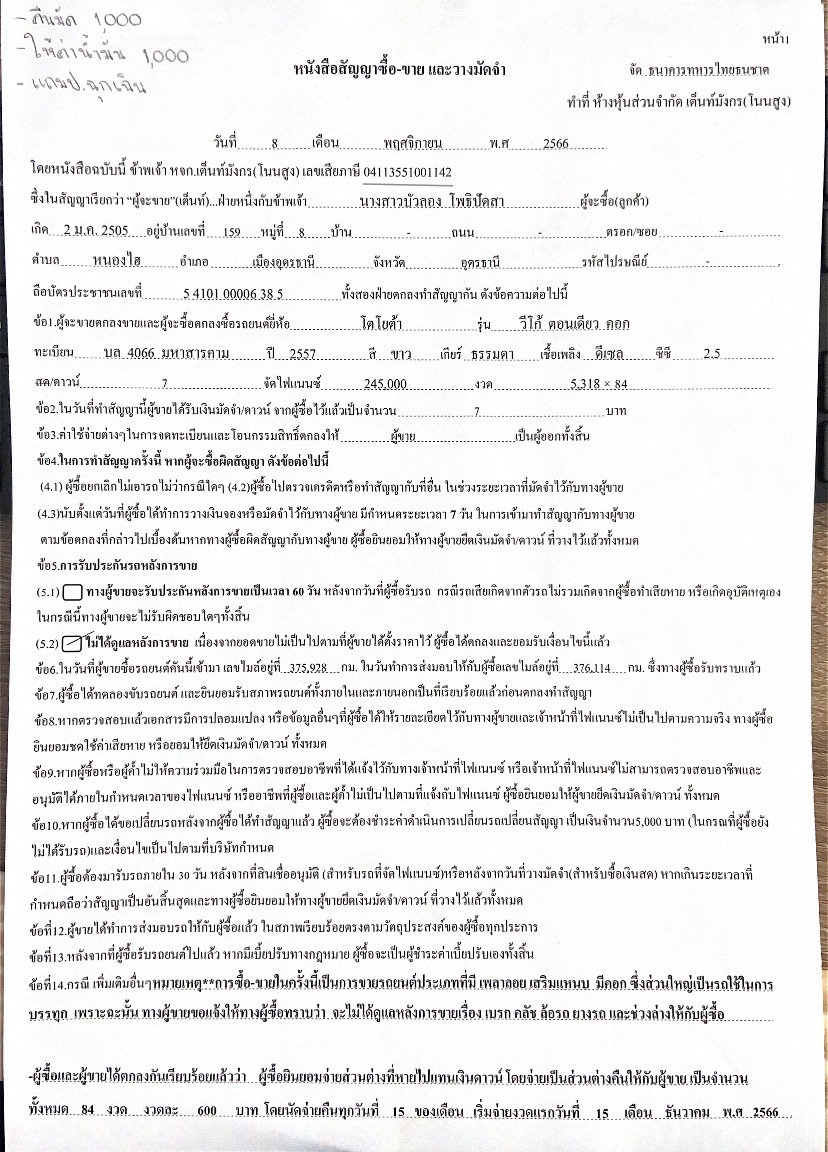 - คืนมัด 1,000
- ให้ค่าน้ำมัน 1,000
- แถมป.ฉุกเฉิน
หน้า1
หนังสือสัญญาซื้อ-ขาย และวางมัดจำ
จัด ธนาคารทหารไทยธนชาต
ทำที่ ห้างหุ้นส่วนจำกัด เต็นท์มังกร(โนนสูง)
วันที่ 8 เดือน พฤศจิกายน พ.ศ 2566
โดยหนังสือฉบับนี้ ข้าพเจ้า หจก.เต็นท์มังกร(โนนสูง) เลขเสียภาษี 04113551001142
ซึ่งในสัญญาเรียกว่า "ผู้จะขาย"(เต็นท์)...ฝ่ายหนึ่งกับข้าพเจ้า นางสาวบัวลอง โพธิปัดสา ผู้จะซื้อ(ลูกค้า)
เกิด 2 ม.ค. 2505 อยู่บ้านเลขที่ 159 หมู่ที่ 8 บ้าน - ถนน - ตรอก/ซอย -
ตำบล หนองไฮ อำเภอ เมืองอุดรธานี จังหวัด อุดรธานี รหัสไปรษณีย์ -
ถือบัตรประชาชนเลขที่ 5 4101 00006 38 5 ทั้งสองฝ่ายตกลงทำสัญญากัน ดังข้อความต่อไปนี้
ข้อ1.ผู้จะขายตกลงขายและผู้จะซื้อตกลงซื้อรถยนต์ยี่ห้อ โตโยต้า รุ่น วีโก้ ตอนเดียว คอก
ทะเบียน บล 4066 มหาสารคาม ปี 2557 สี ขาว เกียร์ ธรรมดา เชื้อเพลิง ดีเซล ซีซี 2.5
สด/ดาวน์ 7 จัดไฟแนนซ์ 245,000 งวด 5,318 × 84
ข้อ2.ในวันที่ทำสัญญานี้ผู้ขายได้รับเงินมัดจำ/ดาวน์ จากผู้ซื้อไว้แล้วเป็นจำนวน 7 บาท
ข้อ3.ค่าใช้จ่ายต่างๆในการจดทะเบียนและโอนกรรมสิทธิ์ตกลงให้ ผู้ขาย เป็นผู้ออกทั้งสิ้น
ข้อ4.ในการทำสัญญาครั้งนี้ หากผู้จะซื้อผิดสัญญา ดังข้อต่อไปนี้
(4.1) ผู้ซื้อยกเลิกไม่เอารถไม่ว่ากรณีใดๆ (4.2)ผู้ซื้อไปตรวจเครดิตหรือทำสัญญากับที่อื่น ในช่วงระยะเวลาที่มัดจำไว้กับทางผู้ขาย
(4.3)นับตั้งแต่วันที่ผู้ซื้อได้ทำการวางเงินจองหรือมัดจำไว้กับทางผู้ขาย มีกำหนดระยะเวลา 7 วัน ในการเข้ามาทำสัญญากับทางผู้ขาย
ตามข้อตกลงที่กล่าวไปเบื้องต้นหากทางผู้ซื้อผิดสัญญากับทางผู้ขาย ผู้ซื้อยินยอมให้ทางผู้ขายยึดเงินมัดจำ/ดาวน์ ที่วางไว้แล้วทั้งหมด
ข้อ5.การรับประกันรถหลังการขาย
(5.1) ทางผู้ขายจะรับประกันหลังการขายเป็นเวลา 60 วัน หลังจากวันที่ผู้ซื้อรับรถ กรณีรถเสียเกิดจากตัวรถไม่รวมเกิดจากผู้ซื้อทำเสียหาย หรือเกิดอุบัติเหตุเอง
ในกรณีนี้ทางผู้ขายจะไม่รับผิดชอบใดๆทั้งสิ้น
(5.2) ไม่ได้ดูแลหลังการขาย เนื่องจากยอดขายไม่เป็นไปตามที่ผู้ขายได้ตั้งราคาไว้ ผู้ซื้อได้ตกลงและยอมรับเงื่อนไขนี้แล้ว
ข้อ6.ในวันที่ผู้ขายซื้อรถยนต์คันนี้เข้ามา เลขไมล์อยู่ที่ 375,928 กม. ในวันทำการส่งมอบให้กับผู้ซื้อเลขไมล์อยู่ที่ 376,114 กม. ซึ่งทางผู้ซื้อรับทราบแล้ว
ข้อ7.ผู้ซื้อได้ทดลองขับรถยนต์ และยินยอมรับสภาพรถยนต์ทั้งภายในและภายนอกเป็นที่เรียบร้อยแล้วก่อนตกลงทำสัญญา
ข้อ8.หากตรวจสอบแล้วเอกสารมีการปลอมแปลง หรือข้อมูลอื่นๆที่ผู้ซื้อได้ให้รายละเอียดไว้กับทางผู้ขายและเจ้าหน้าที่ไฟแนนซ์ไม่เป็นไปตามความจริง ทางผู้ซื้อ
ยินยอมชดใช้ค่าเสียหาย หรือยอมให้ยึดเงินมัดจำ/ดาวน์ ทั้งหมด
ข้อ9.หากผู้ซื้อหรือผู้ค้ำไม่ให้ความร่วมมือในการตรวจสอบอาชีพที่ได้แจ้งไว้กับทางเจ้าหน้าที่ไฟแนนซ์ หรือเจ้าหน้าที่ไฟแนนซ์ไม่สามารถตรวจสอบอาชีพและ
อนุมัติได้ภายในกำหนดเวลาของไฟแนนซ์ หรืออาชีพที่ผู้ซื้อและผู้ค้ำไม่เป็นไปตามที่แจ้งกับไฟแนนซ์ ผู้ซื้อยินยอมให้ผู้ขายยึดเงินมัดจำ/ดาวน์ ทั้งหมด
ข้อ10.หากผู้ซื้อได้ขอเปลี่ยนรถหลังจากผู้ซื้อได้ทำสัญญาแล้ว ผู้ซื้อจะต้องชำระค่าดำเนินการเปลี่ยนรถเปลี่ยนสัญญา เป็นเงินจำนวน5,000 บาท (ในกรณีที่ผู้ซื้อยัง
ไม่ได้รับรถ)และเงื่อนไขเป็นไปตามที่บริษัทกำหนด
ข้อ11.ผู้ซื้อต้องมารับรถภายใน 30 วัน หลังจากที่สินเชื่ออนุมัติ (สำหรับรถที่จัดไฟแนนซ์)หรือหลังจากวันที่วางมัดจำ(สำหรับซื้อเงินสด) หากเกินระยะเวลาที่
กำหนดถือว่าสัญญาเป็นอันสิ้นสุดและทางผู้ซื้อยินยอมให้ทางผู้ขายยึดเงินมัดจำ/ดาวน์ ที่วางไว้แล้วทั้งหมด
ข้อที่12.ผู้ขายได้ทำการส่งมอบรถให้กับผู้ซื้อแล้ว ในสภาพเรียบร้อยตรงตามวัตถุประสงค์ของผู้ซื้อทุกประการ
ข้อที่13.หลังจากที่ผู้ซื้อรับรถยนต์ไปแล้ว หากมีเบี้ยปรับทางกฎหมาย ผู้ซื้อจะเป็นผู้ชำระค่าเบี้ยปรับเองทั้งสิ้น
ข้อที่14.กรณี เพิ่มเติมอื่นๆหมายเหตุ**การซื้อ-ขายในครั้งนี้เป็นการขายรถยนต์ประเภทที่มี เพลาลอย เสริมแหนบ มีคอก ซึ่งส่วนใหญ่เป็นรถใช้ในการ
บรรทุก เพราะฉะนั้น ทางผู้ขายขอแจ้งให้ทางผู้ซื้อทราบว่า จะไม่ได้ดูแลหลังการขายเรื่อง เบรก คลัช ล้อรถ ยางรถ และช่วงล่างให้กับผู้ซื้อ
-ผู้ซื้อและผู้ขายได้ตกลงกันเรียบร้อยแล้วว่า ผู้ซื้อยินยอมจ่ายส่วนต่างที่หายไปแทนเงินดาวน์ โดยจ่ายเป็นส่วนต่างคืนให้กับผู้ขาย เป็นจำนวน
ทั้งหมด 84 งวด งวดละ 600 บาท โดยนัดจ่ายคืนทุกวันที่ 15 ของเดือน เริ่มจ่ายงวดแรกวันที่ 15 เดือน ธันวาคม พ.ศ 2566